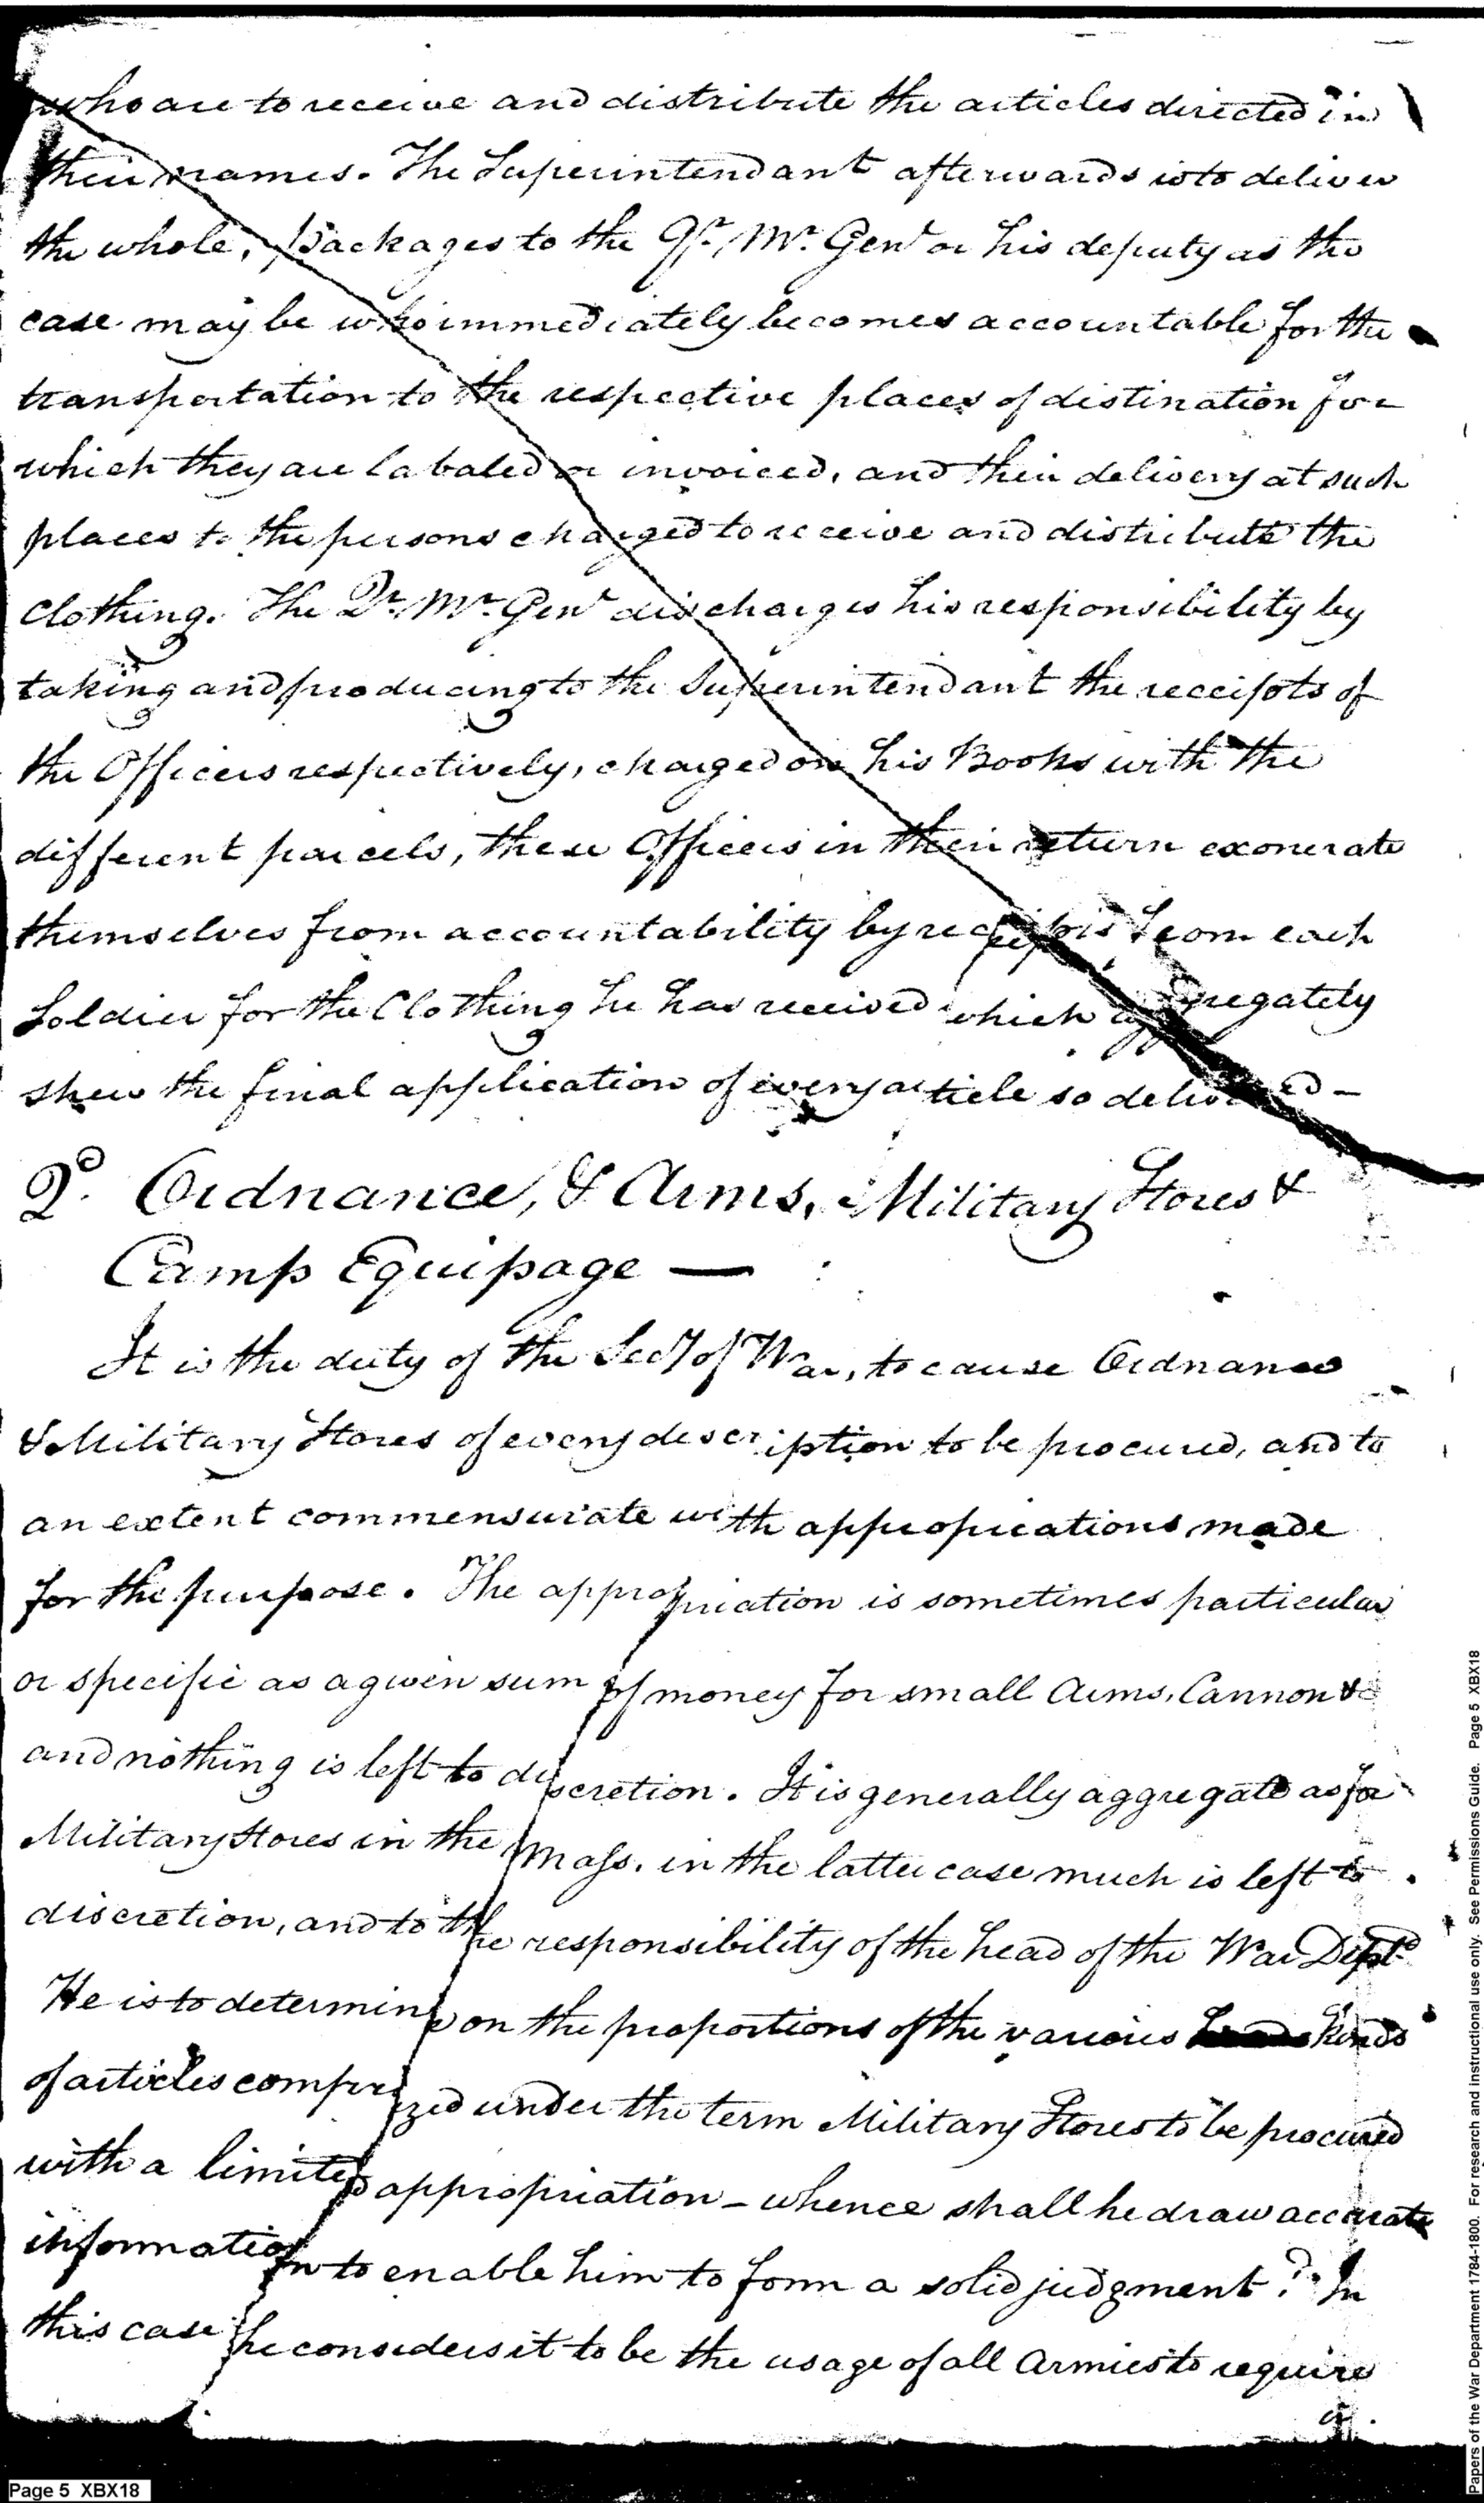 who are to receive and distribute the articles directed in
their names. The Superintendant afterwards is to deliver
the whole, packages to the Qr. Mr. Genl or his deputy as the
case may be who immediately becomes accountable for the
transportation to the respective places of distination for
which they are labaled or invoiced, and their delivery at such
places to the persons charged to receive and distribute the
Clothing. The Qr. Mr. Genl discharges his responsibility by
taking and producing to the Superintendant the receipts of
the Officers respectively, charged on his Books with the
different parcels, these Officers in their return exonerate
themselves from accountability by receipts from each
Soldier for the Clothing he has received which aggregately
shew the final application of every article so delivered –
2d. Ordnance, & Arms, Military Stores &
Camp Equipage —
It is the duty of the Secy of War, to cause Ordnance
& Military Stores of every description to be procured, and to
an extent commensurate with appropriations made
for the purpose. The appropriation is sometimes particular
or specific as a given sum of money for small Arms, Cannon &c
and nothing is left to discretion. It is generally aggregate as for
Military Stores in the Mass. in the latter case much is left to
discretion, and to the responsibility of the head of the War Dept.
He is to determine on the proportions of the various kinds
of articles comprized under the term Military Stores to be procured
with a limited appropriation – whence shall he draw accurate
information to enable him to form a solid judgment? In
this case he considers it to be the usage of all Armies to require
Page 5 XBX18
Papers of the War Department 1784-1800. For research and instructional use only. See Permissions Guide. Page 5 XBX18